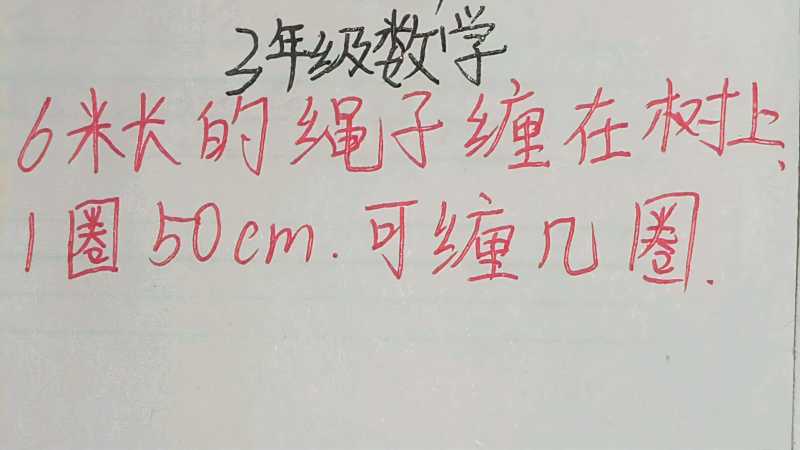 3年级数学
6米长的绳子缠在树上、
1圈50cm.可缠几圈.